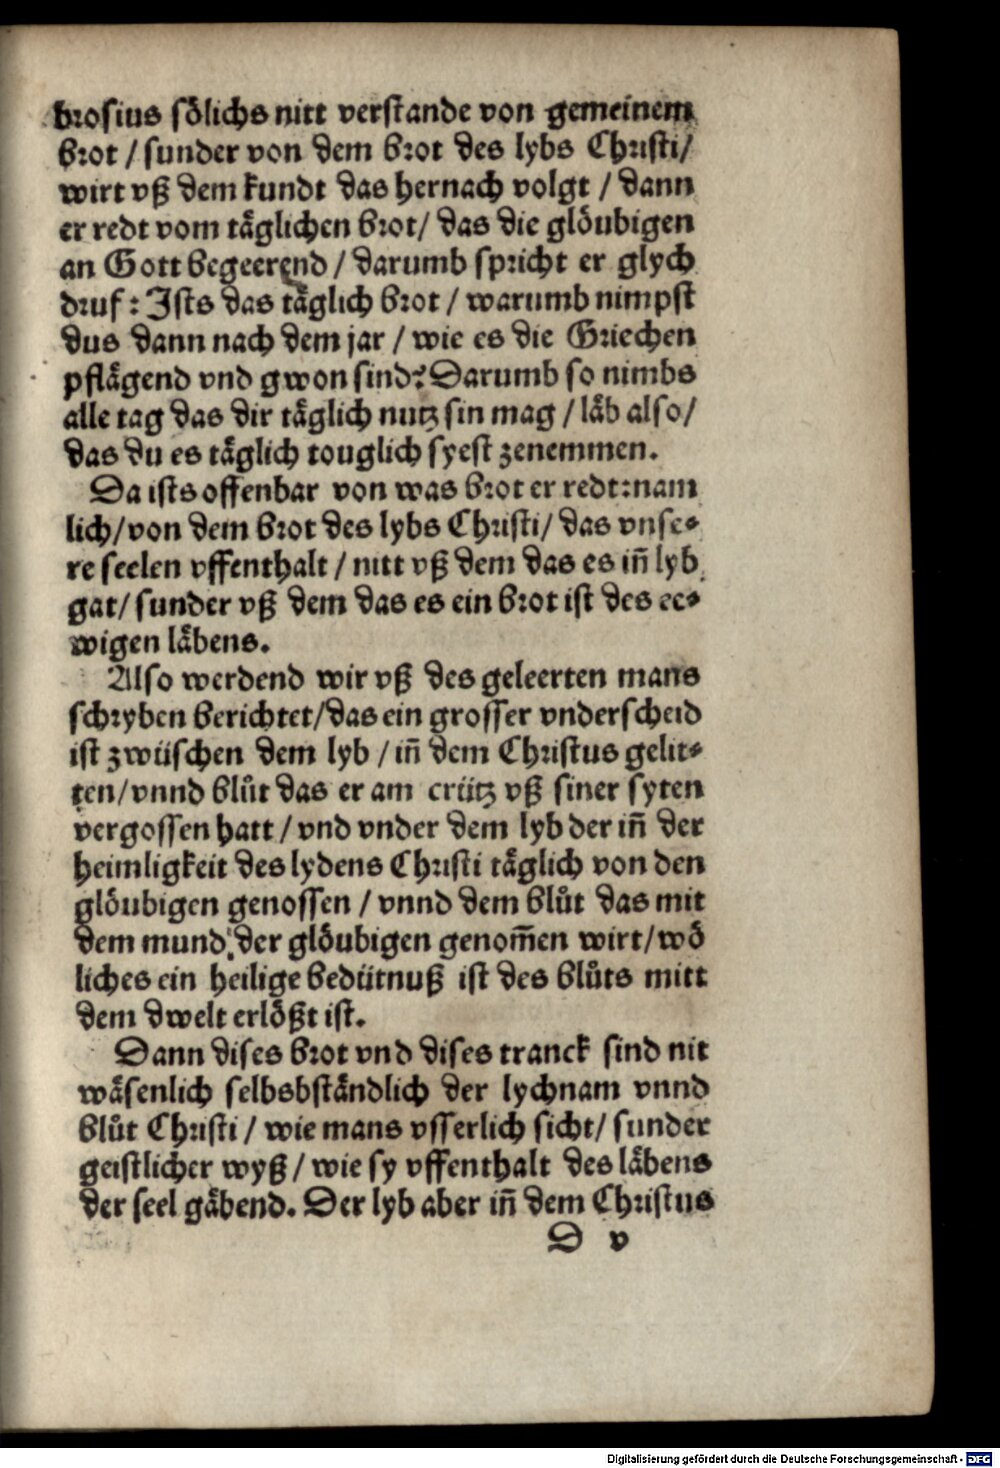 brosius soͤlichs nitt verstande von gemeinem
brot / sunder von dem brot des lybs Christi/
wirt vß dem kundt das hernach volgt / dann
er redt vom taͤglichen brot/ das die gloͤubigen
an Gott begeerend / darumb spricht er glych
druf: Ists das taͤglich brot / warumb nimpst
dus dann nach dem jar / wie es die Griechen
pflaͤgend vnd gwon sind? Darumb so nimbs
alle tag das dir taͤglich nutz sin mag / laͤb also/
das du es taͤglich touglich syest zenemmen.
Da ists offenbar von was brot er redt: nam
lich/ von dem brot des lybs Christi/ das vnse⸗
re seelen vffenthalt / nitt vß dem das es in̄ lyb
gat/ sunder vß dem das es ein brot ist des ee⸗
wigen laͤbens.
Also werdend wir vß des geleerten mans
schryben berichtet/ das ein grosser vnderscheid
ist zwüschen dem lyb / in̄ dem Christus gelit⸗
ten/ vnnd bluͦt das er am crütz vß siner syten
vergossen hatt / vnd vnder dem lyb der in̄ der
heimligkeit des lydens Christi taͤglich von den
gloͤubigen genossen / vnnd dem bluͦt das mit
dem mund der gloͤubigen genom̄en wirt/ woͤ
liches ein heilige bedütnuß ist des bluͦts mitt
dem dwelt erloͤßt ist.
Dann dises brot vnd dises tranck sind nit
waͤsenlich selbsbstaͤndlich der lychnam vnnd
bluͦt Christi / wie mans vsserlich sicht/ sunder
geistlicher wyß / wie sy vffenthalt des laͤbens
der seel gaͤbend. Der lyb aber in̄ dem Christus
D v
Digitalisierung gefördert durch die Deutsche Forschungsgemeinschaft - DFG